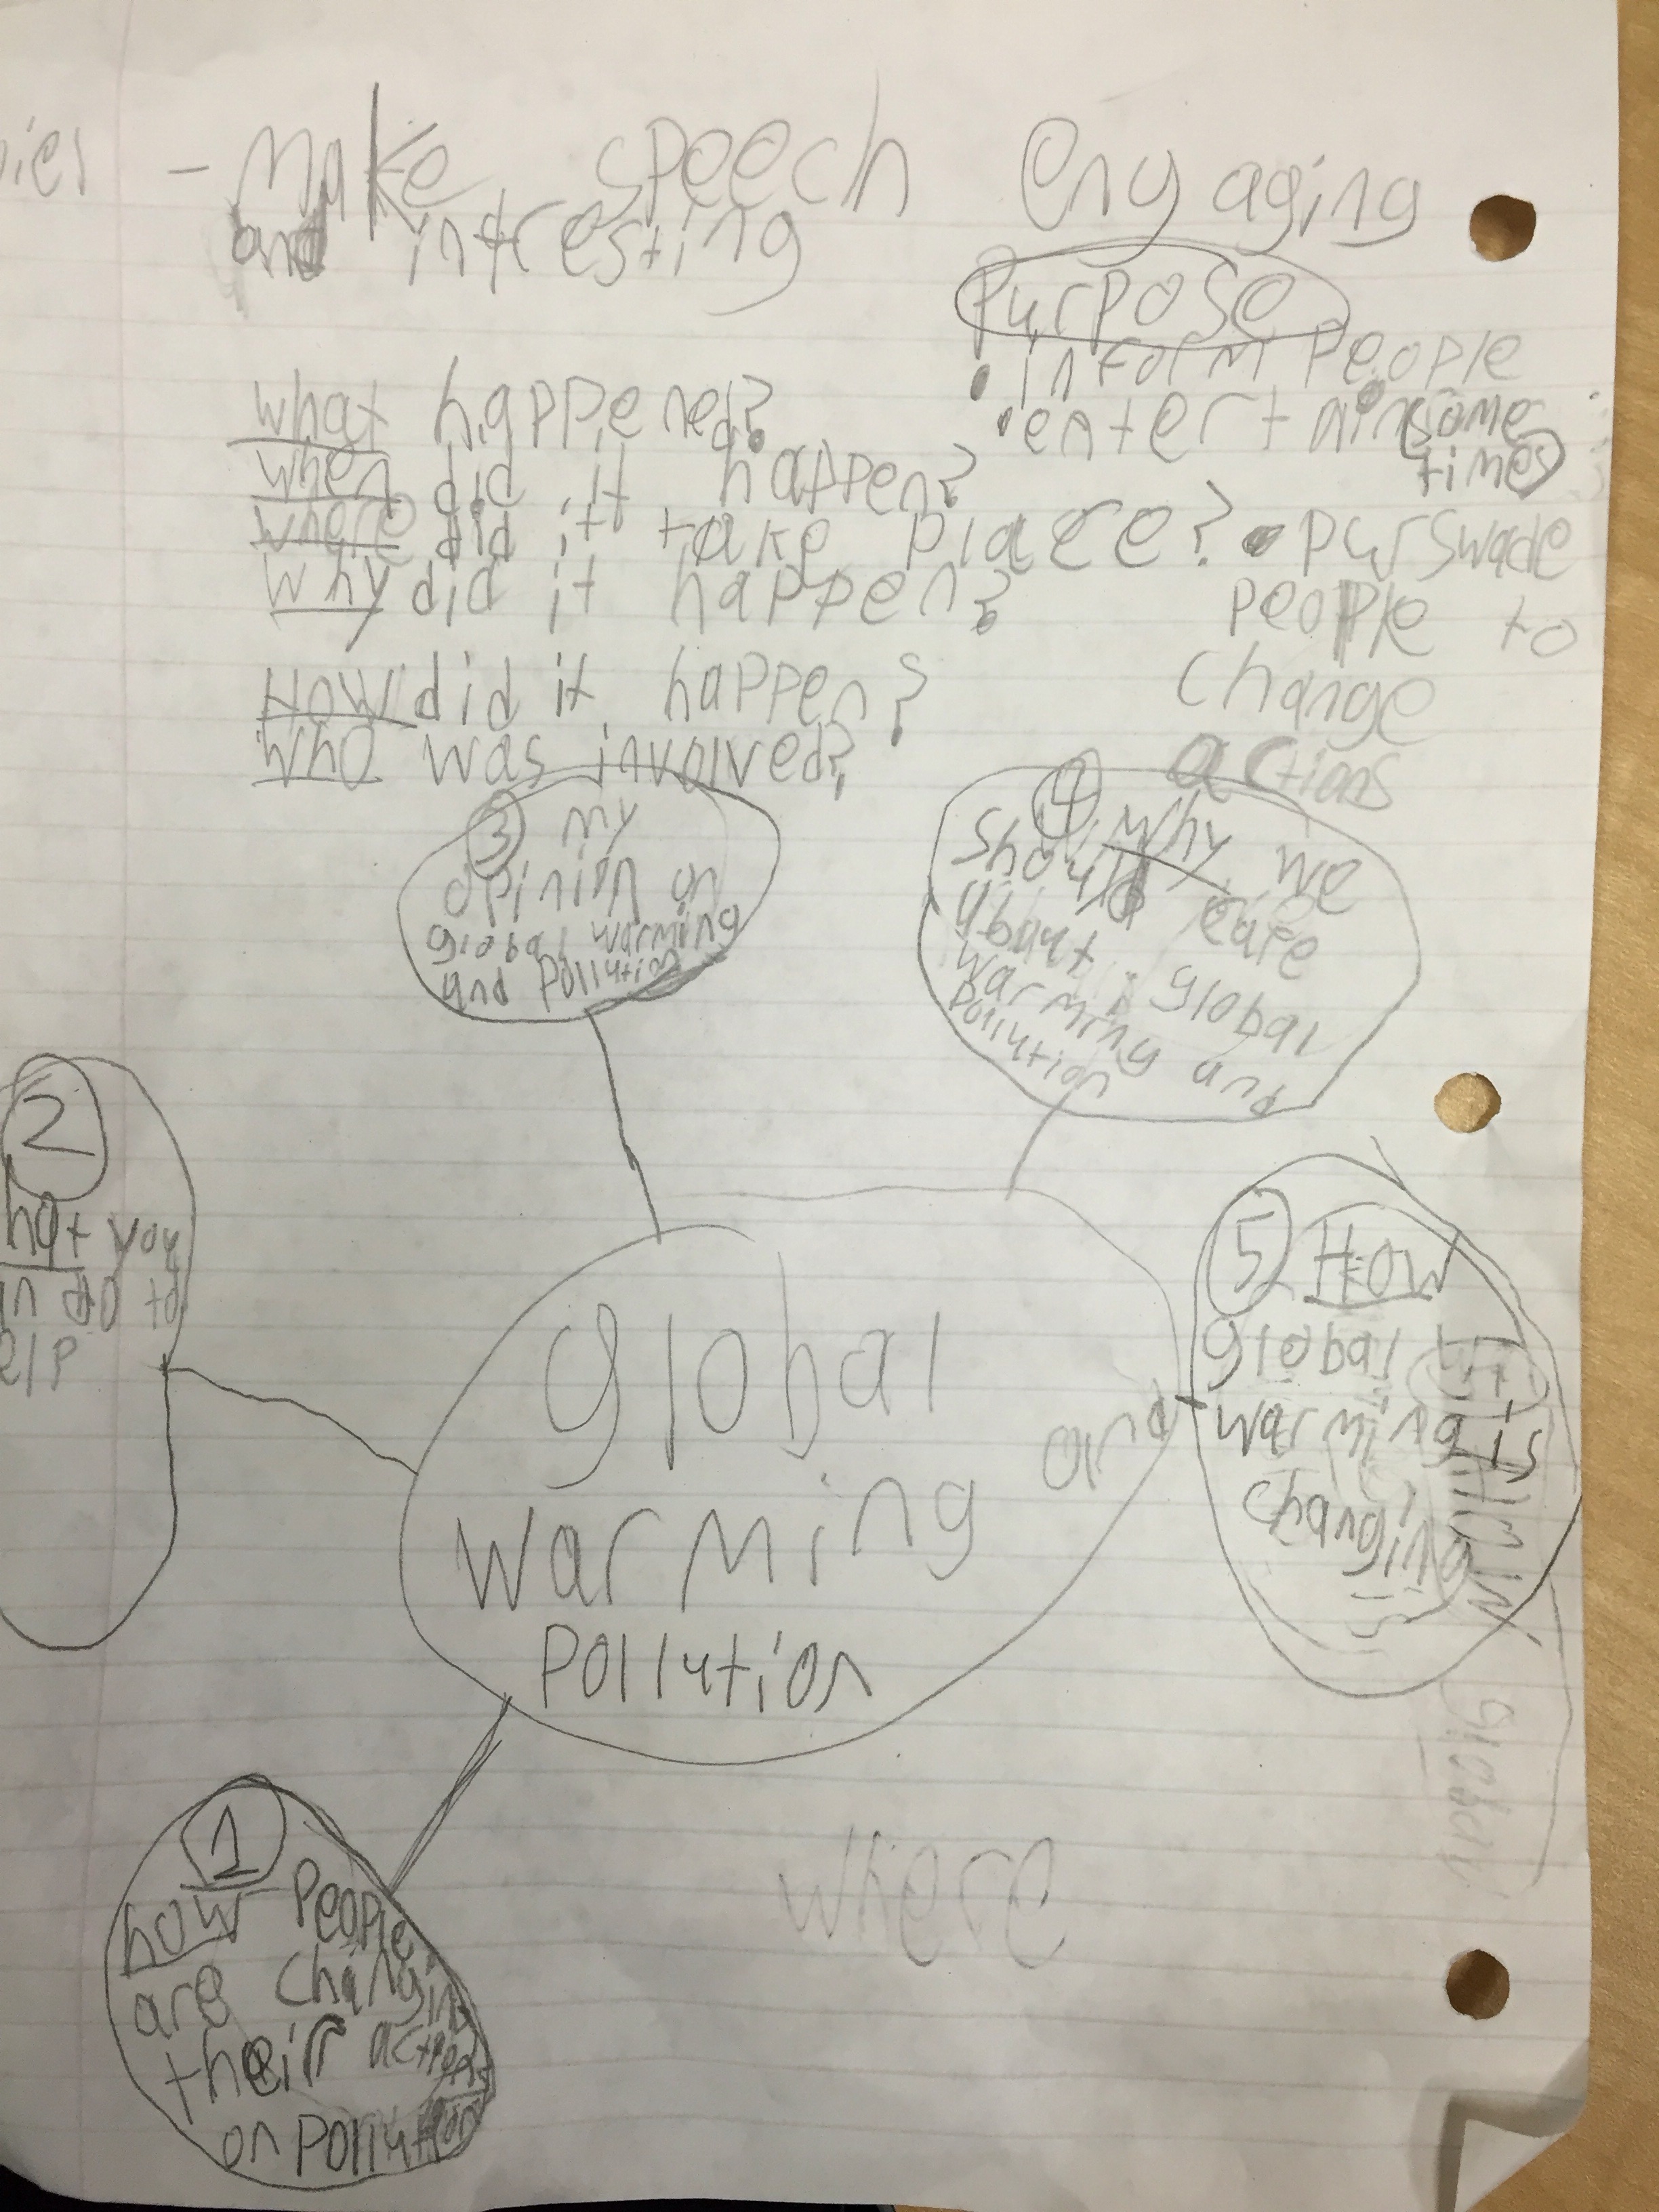 - Make speech engaging
and intresting
Purpose
• inform people
• entertain some
times
• purswade
people to
change
actions
what happened?
when did it happen?
where did it take place?
Why did it happen?
How did it happen?
who was involved?
3 my
opinion on
global warming
and pollution
4 Why we
should care
about global
warming and
pollution
2
hat you
an do to
elp
5 How
global
warming is
changing
global
warming and
pollution
1
how people
are changing
their actions
on pollution
where
global